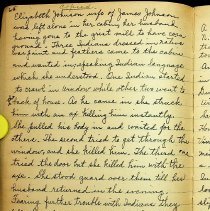 Elizabeth Johnson wife of James Johnson
was left alone in her cabin, her husband
having gone to the grist mill to have corn
ground. Three Indians dressed in native
war paint and feathers came to the cabin
and wanted in, speaking Indian language
which she understood. One Indian started
to crawl in window while other two went to
back of house. As he came in she struck
him with an ax killing him instantly.
She pulled his body in and waited for the
others. The second tried to get through the
window, and she killed him. The third one
tried the door but she killed him with the
axe. She stood guard over them till her
husband returned in the evening.
Fearing further trouble with Indians they